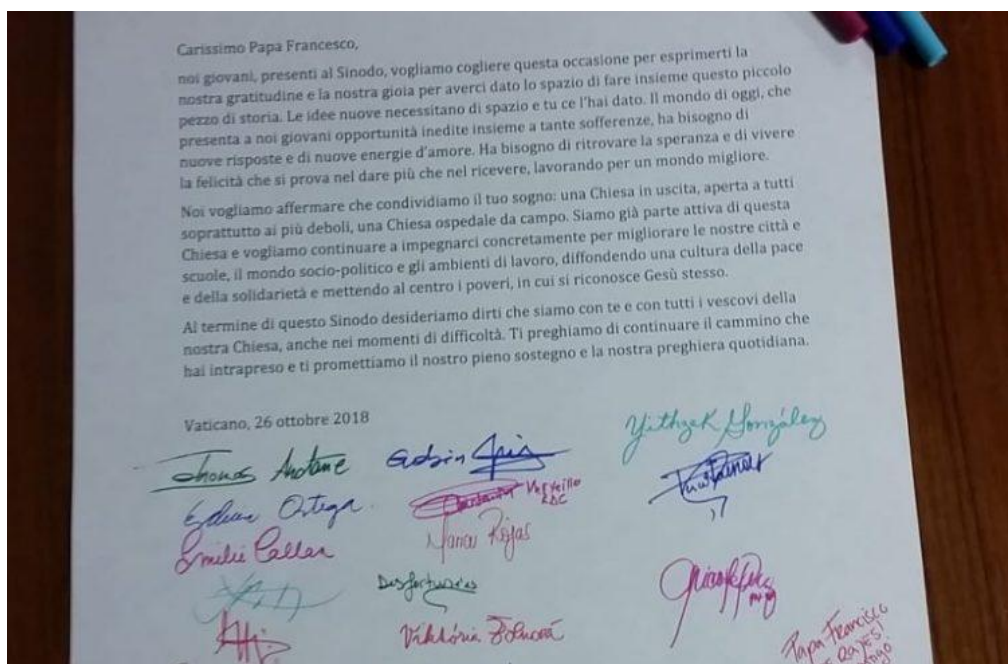 Carissimo Papa Francesco,
noi giovani, presenti al Sinodo, vogliamo cogliere questa occasione per esprimerti la
nostra gratitudine e la nostra gioia per averci dato lo spazio di fare insieme questo piccolo
pezzo di storia. Le idee nuove necessitano di spazio e tu ce l'hai dato. Il mondo di oggi, che
presenta a noi giovani opportunità inedite insieme a tante sofferenze, ha bisogno di
nuove risposte e di nuove energie d'amore. Ha bisogno di ritrovare la speranza e di vivere
la felicità che si prova nel dare più che nel ricevere, lavorando per un mondo migliore.
Noi vogliamo affermare che condividiamo il tuo sogno: una Chiesa in uscita, aperta a tutti
soprattutto ai più deboli, una Chiesa ospedale da campo. Siamo già parte attiva di questa
Chiesa e vogliamo continuare a impegnarci concretamente per migliorare le nostre città e
scuole, il mondo socio-politico e gli ambienti di lavoro, diffondendo una cultura della pace
e della solidarietà e mettendo al centro i poveri, in cui si riconosce Gesù stesso.
Al termine di questo Sinodo desideriamo dirti che siamo con te e con tutti i vescovi della
nostra Chiesa, anche nei momenti di difficoltà. Ti preghiamo di continuare il cammino che
hai intrapreso e ti promettiamo il nostro pieno sostegno e la nostra preghiera quotidiana.
Vaticano, 26 ottobre 2018
Yithzak González
Thomas Andonie
Ortega
Emilie Callan
Rojas
Viktória
Papa Francisco